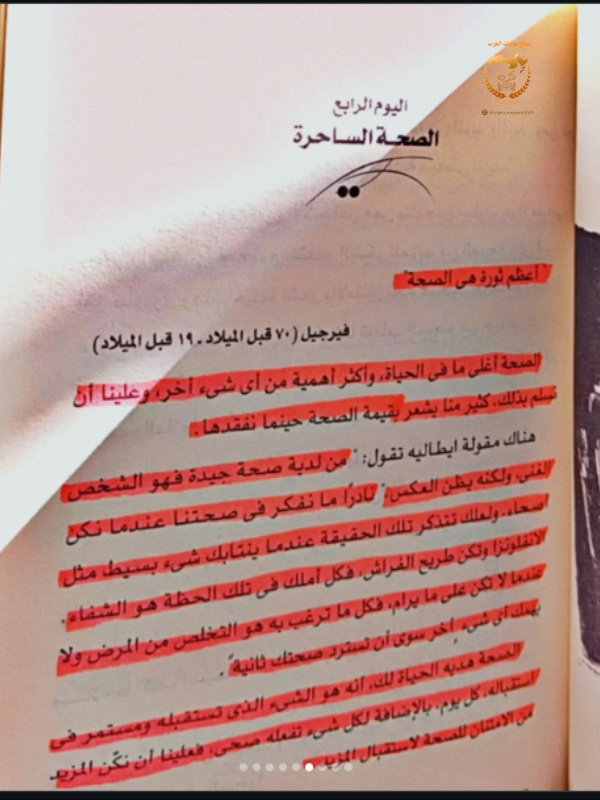 اليوم الرابع
الصحة الساحرة
"أعظم ثورة هى الصحة"
فيرجيل (٧٠ قبل الميلاد ـ ١٩ قبل الميلاد)
الصحة أغلى ما فى الحياة، وأكثر أهمية من أى شىء أخر، وعلينا أن
نسلم بذلك. كثير منا يشعر بقيمة الصحة حينما نفقدها.
هناك مقولة ايطاليه تقول: "من لدية صحة جيدة فهو الشخص
الغنى، ولكنه يظن العكس." نادرًا ما نفكر فى صحتنا عندما نكن
أصحاء، ولعلك تتذكر تلك الحقيقة عندما ينتابك شىء بسيط مثل
الانفلونزا وتكن طريح الفراش، فكل أملك فى تلك الحظة هو الشفاء.
عندما لا تكن على ما يرام، فكل ما ترغب به هو التخلص من المرض ولا
يهمك أى شىء أخر سوى أن تسترد صحتك ثانية".
الصحة هديه الحياة لك، انه هو الشىء الذى تستقبله ومستمر فى
استقباله، كل يوم، بالإضافة لكل شىء تفعله صحى، فعلينا أن نكن المزيد
من الامتنان للصحة لاستقبال المزيد.